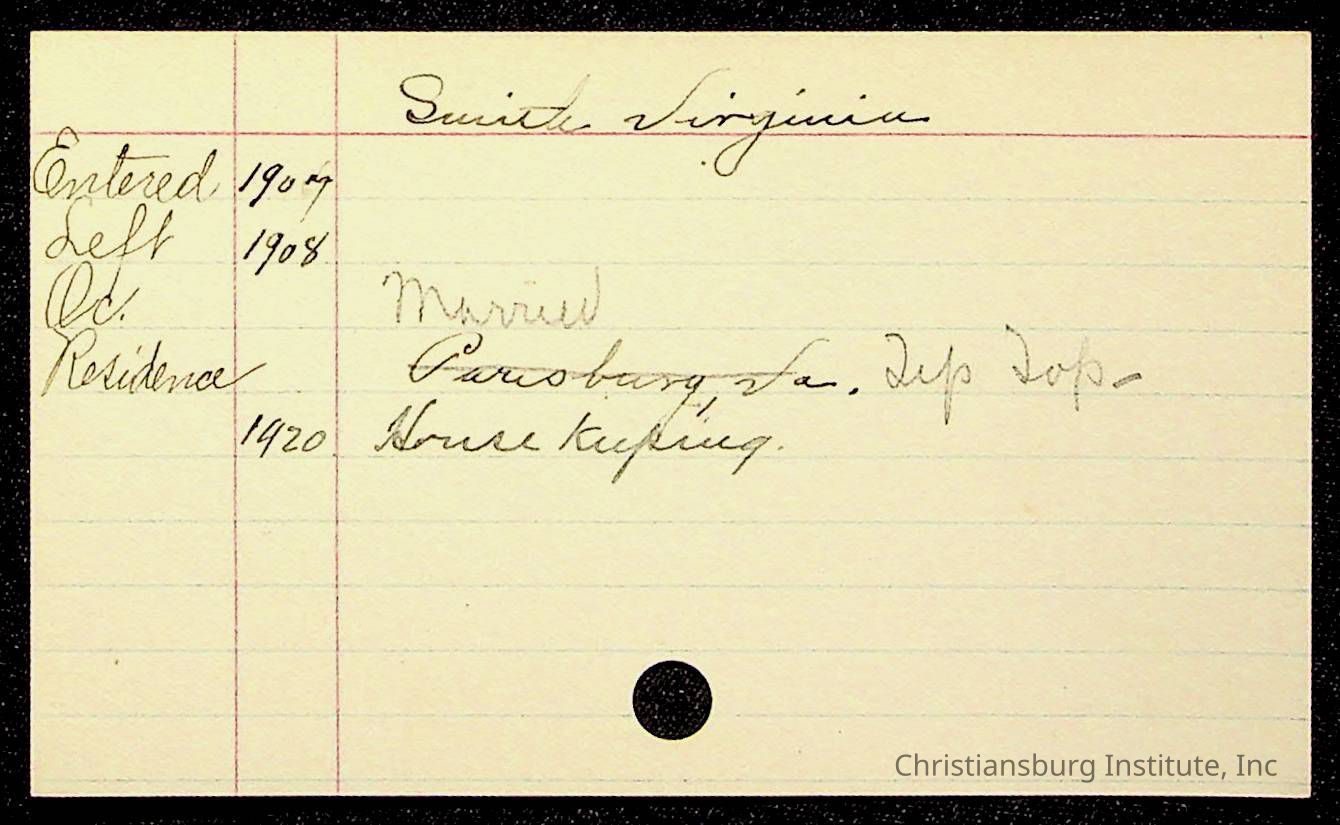 Smith Virginia
Entered 1907
Left 1908
Oc. Married
Residence Parisburg, Va. Tip Top-
1920 House Keeping.
Christiansburg Institute, Inc